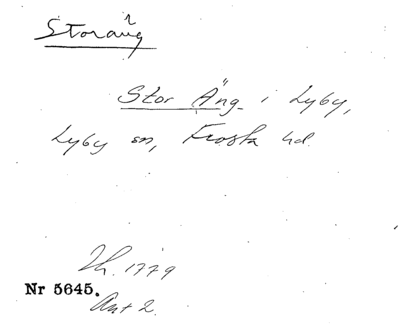 Storäng
Stor Äng i Lyby,
Lyby sn, Frosta hd.
Lh. 1779
Nr 5645.
Ant 2.